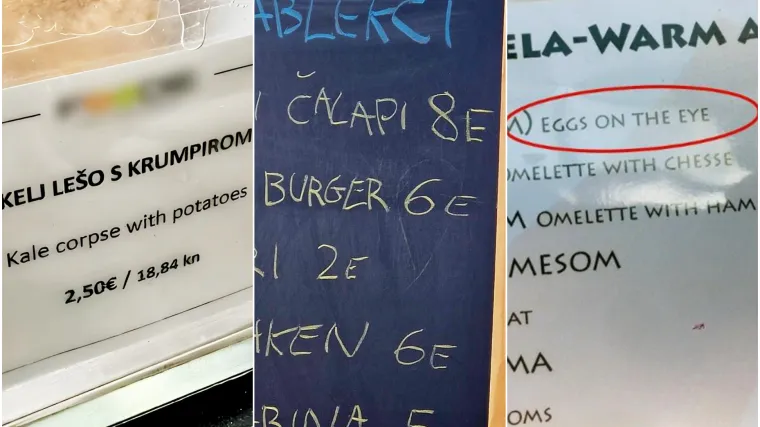 KELJ LEŠO S KRUMPIROM
Kale corpse with potatoes
2,50€ / 18,84 kn
ABLEKCI
I ČALAPI 8E
BURGER 6E
RI 2E
AKEN 6E
BINA 5
ELA-WARM A
M) EGGS ON THE EYE
OMELETTE WITH CHESSE
M OMELETTE WITH HAM
MESOM
AT
MA
OMS